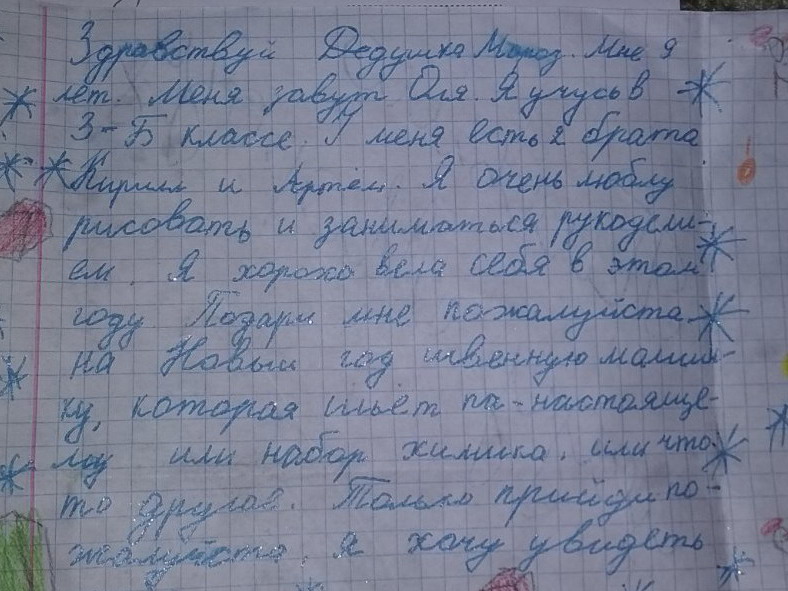 Здравствуй Дедушка Мороз. Мне 9
лет. Меня завут Оля. Я учусь в
3-Б классе. У меня есть 2 брата
Кирилл и Артём. Я очень люблу
рисовать и заниматься рукодели-
ем. Я хорошо вела себя в этом
году. Подари мне пожалуйста
на Новый год швенную машин-
ку, которая шьёт па-настояще-
му или набор химика, или что-
то другое. Только прийди по-
жалуйста, я хочу увидеть